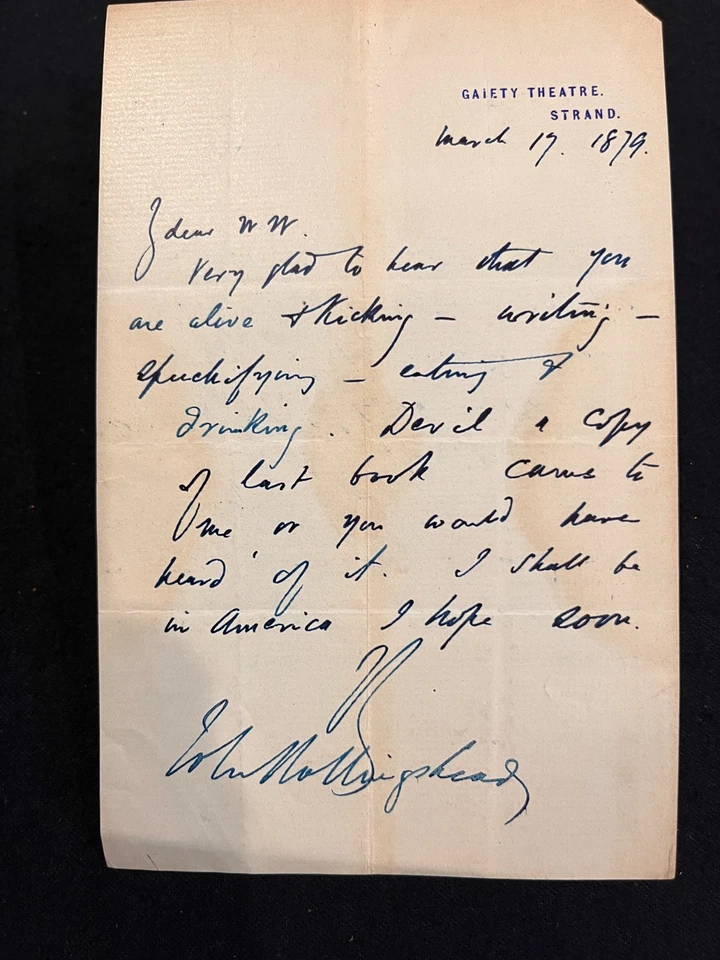 GAIETY THEATRE.
STRAND.
March 17. 1879.
dear W W.
Very glad to hear that you
are alive & Kicking – writing –
speechifying – eating &
drinking. Devil a copy
of last book came to
me or you would have
heard of it. I shall be
in America I hope soon.
John Hollingshead